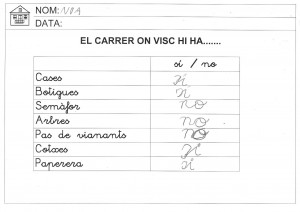 NOM: NOA
DATA:
EL CARRER ON VISC HI HA.......
sí / no
Cases sí
Botigues sí
Semàfor no
Arbres no
Pas de vianants no
Cotxes sí
Paperera sí